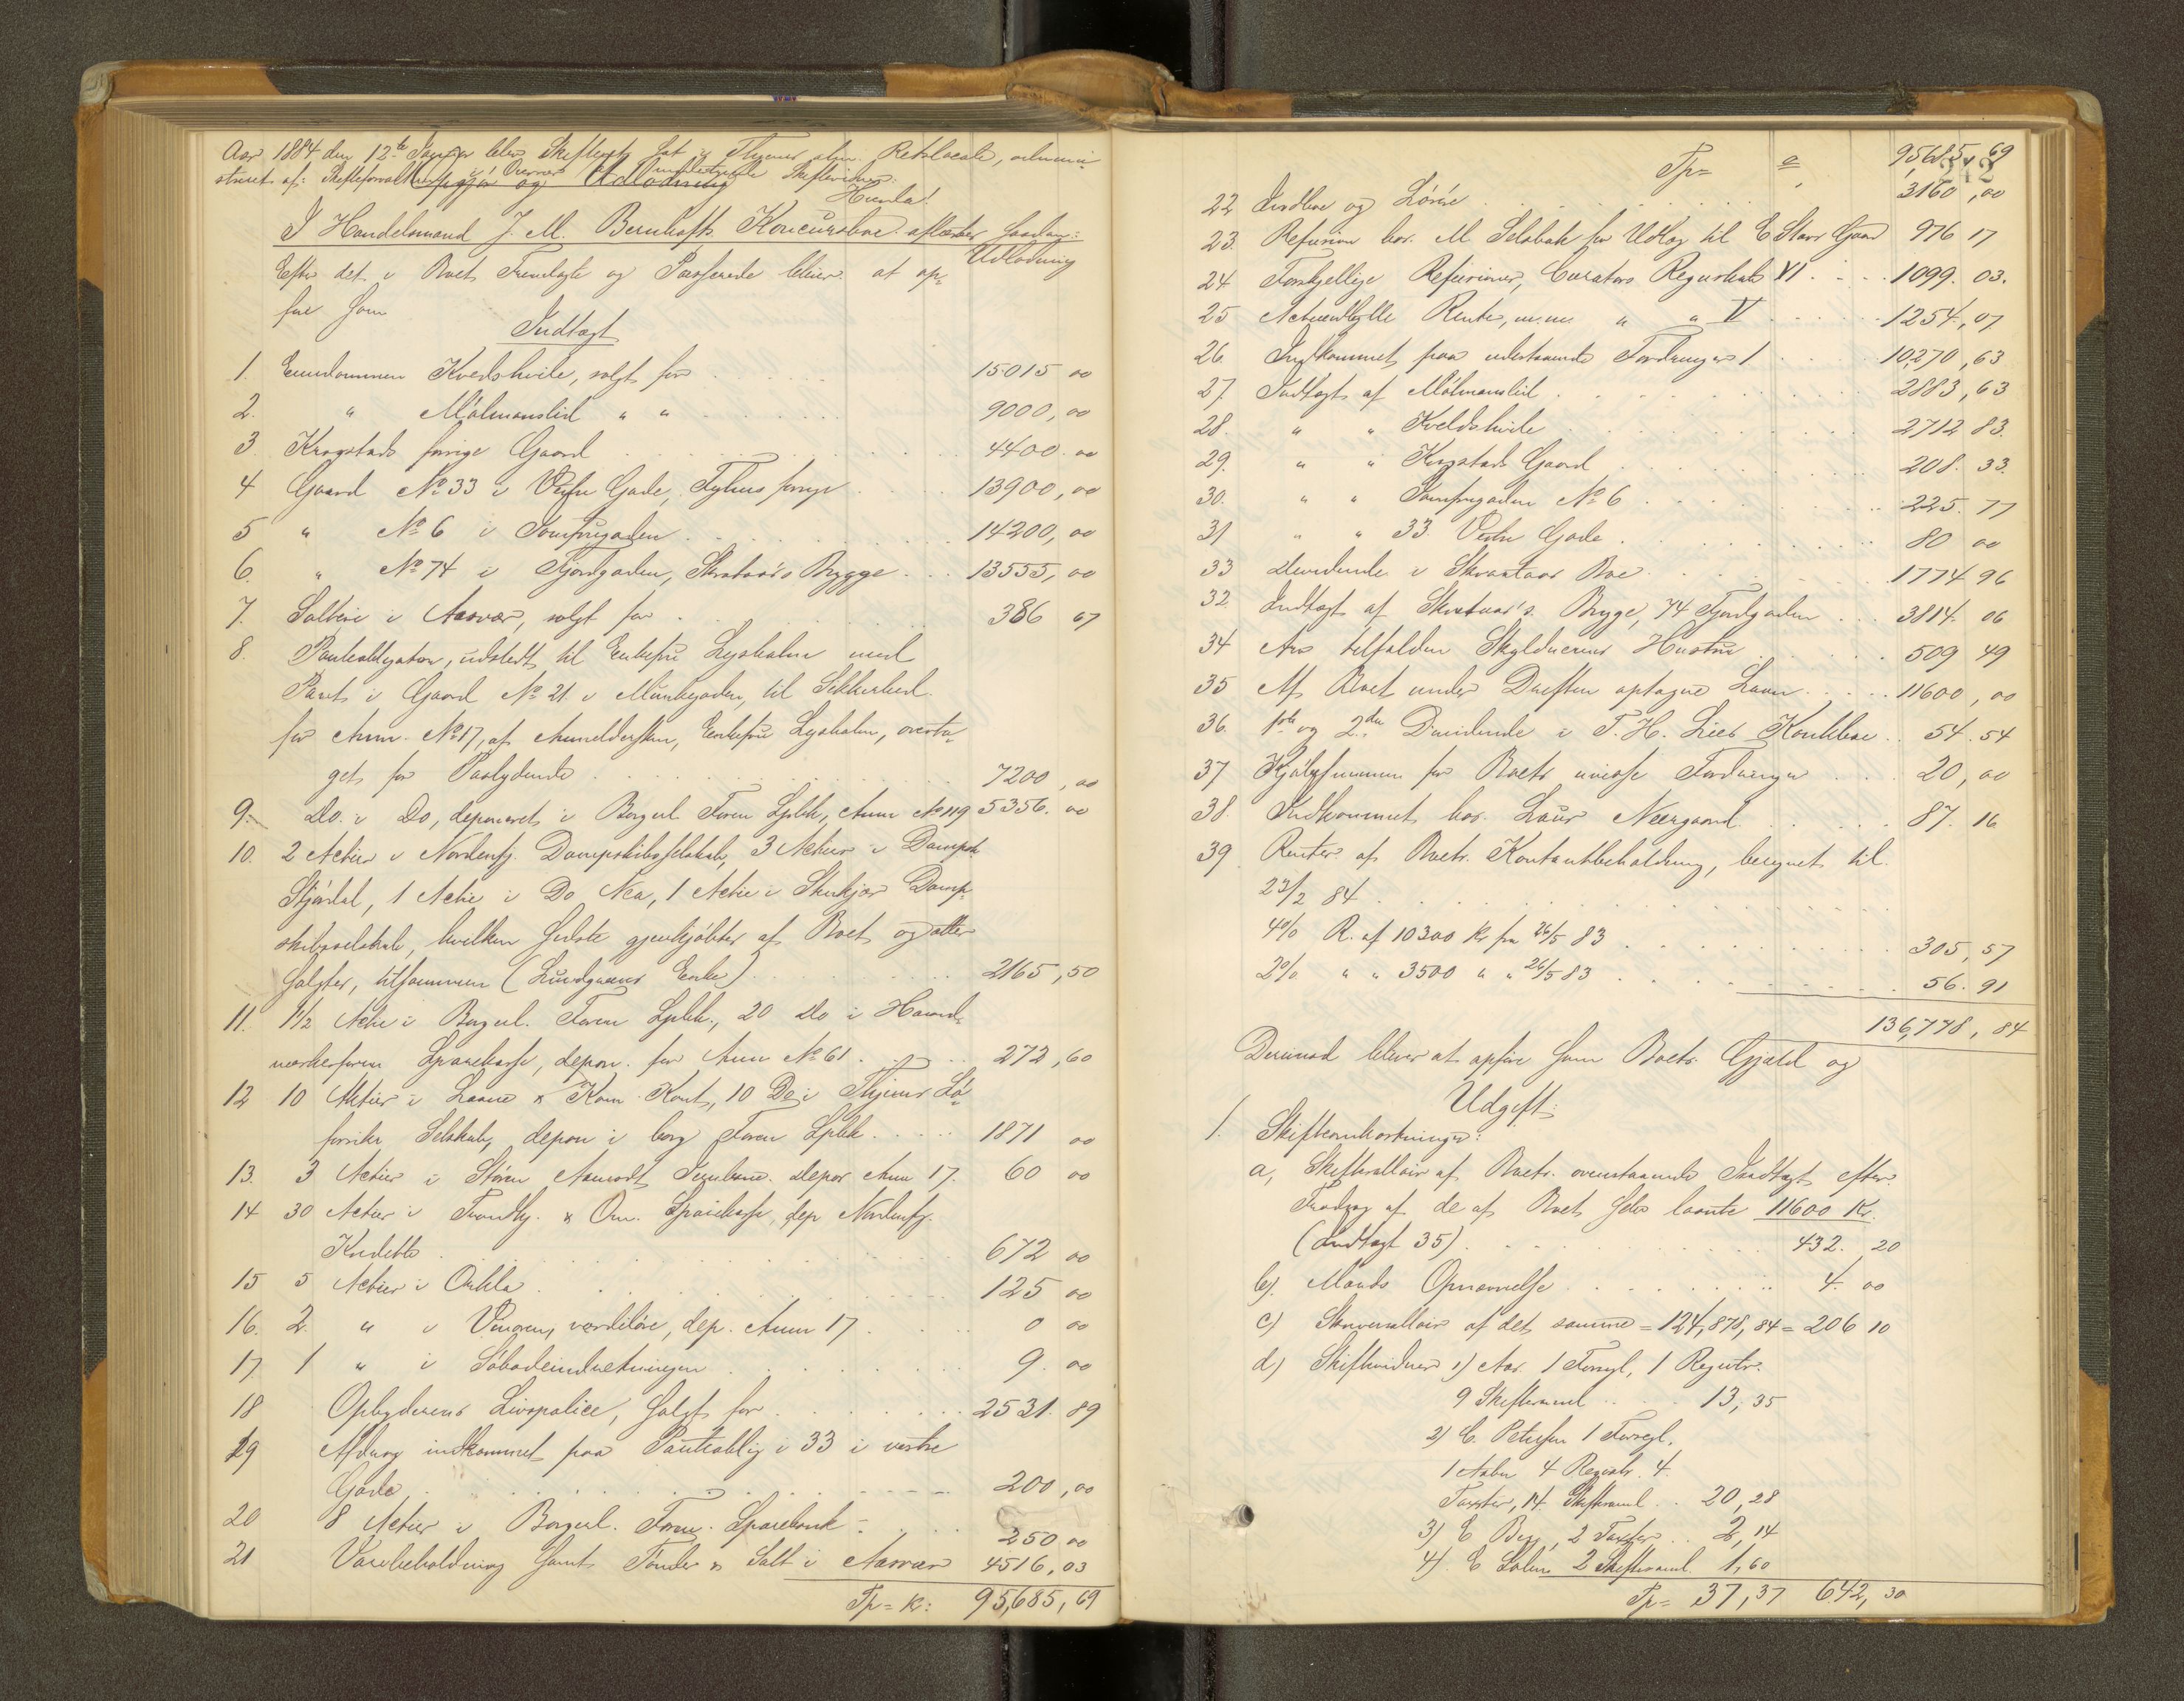 Aar 1884 den 12te blev Skifteret sat i Thjems alm. Retslocale, admini-
streret af: Skifteforvalteren i Overvær undertegnede Skiftevidner.
og Udlodning
I Handelsmand J. M. Bernhofts Koncursboe afleveres saadan:
Udlodning
Efter det i Boet Fremlagte og Passerede bliver at op-
føre som
Indtægt
1. Eiendommen Kvedshvile, solgt for 15015 00
2. " Mólmanslid " " 9000,00
3. Krogstads forrige Gaard 4400.00
4 Gaard No 33 i Vestre Gade, forrige 13900,00
5 " No 6 i Jomfrugaden 14200,00
6. " No 74 i Fjordgaden, Skrataas's Brygge 13555,00
7. Saltere i Aasvær, solgt for 386 67
8. Panteobligation, udstedt til Enkefru Lysholm med
Pant i Gaard No 21 i Munkegaden, til Sikkerhed
for Anm. No 17, af Anmeldersken, Enkefru Lysholm, overta-
get for Paalydende 7200,00
9. Do. i Do, deponeret i Borgerl Foren Spbk, Anm No 119 5356.00
10. 2 Actier i Nordenfj. Dampskibsselskab, 3 Actier i Dampsk.
Stjørdal, 1 Actie i Do Nea, 1 Actie i Stenkjær Damp-
skibsselskab, hvilken sidste gjenkjøbtes af Boet og atter
solgtes, tilsammen (Lundgreens Enke) 2165,50
11. 1 1/2 Actie i Borgerl. Foren Spbk., 20 Do i Haand-
værkerforen Sparekasse, depon. for Anm No 61 272,60
12 10 Aktier i Laane & Kom. Kont, 10 Do i Thjems Sø-
forsikr Selskab, depon i borg Foren Spbk 1871 00
13. 3 Actier i Støren Aamodt Jernbane depon Anm 17. 60 00
14 30 Actier i Trondhj. & Om. Sparekasse, dep Nordenfj.
Kreditb 672 00
15 5 Actier i Orkla 125 00
16. 2 " i værdiløse, dep. Anm 17 0 00
17 1 " i Søbadeindretningen 9.00
18 Opbyderens Livspolice, solgt for 2531.89
19 Afdrag indkommet paa Panteoblig i 33 i vestre
Gade 200,00
20 8 Actier i Borgerl. Foren. Sparebank 250 00
21 Varebeholdning samt Tønder & Salt i Aasvær 4516,03
Tp = Kr: 95,685,69
Tp= 95685 69
22 Indboe og Løsøre 3160,00
23. Refusion hos. M. Selsbak for Udlæg til E Gaard 976 17
24 Forskjellige Refusioner, Curators Regnskab VI 1099.03.
25 Rente, m.m. " " V 1254,07
26. Indkommet paa udestaaende Fordringer I 10,270,63
27. Indtægt af Mólmanslid 2883,63
28. " " Kveldshvile 2712 83.
29. " " Krogstads Gaard 208.33.
30. " " Jomfrugaden No 6 225.77
31 " " 33 Vestre Gade 80 00
33 Dividende i Boe 1774 96
32. Indtægt af Skrataas's Brygge, 74 Fjordgaden 3814.06
34 Arv tilfalden Skyldnerens Hustru 509 49
35 Af Boet under Driften optagne Laan 11600,00
36. 1ste og 2den Dividende i T. H. Lies Konkboe 54.54
37 Kjøbesummen for Boets uvisse Fordringer 20,00
38. Indkommet hos. Laur Neergaard 87.16
39 Renter af Boets. Kontantbeholdning, beregnet til
23/2 84
4% R. af 10300 Kr fra 26/5 83 305,57
2% " " 3500 " " 26/5 83 56.91
136,778,84
Derimod bliver at opføre som Boets Gjæld og
Udgift:
1. Skifteomkostninger:
a, Skiftesallair af Boets. ovenstaaende Indtægt efter
Fradrag af de af Boet selv laante 11600 Kr.
(Indtægt 35) 432.20
b). Mands Opnævnelse 4.00
c) Skriversallair af det samme = 124,878,84 = 206 10
d) Skiftevidner 1) Aas. 1 Forsegl, 1 Registr.
9 Skiftesaml 13,35
2) C. Petersen 1 Forsegl,
1 Aabn 4 Registr. 4.
Taxter, 14 Skiftesaml 20,28
3) E Berg, 2 Taxter 2,14
4). E 2 Skiftesaml 1,60
Tp = 37,37 642,30